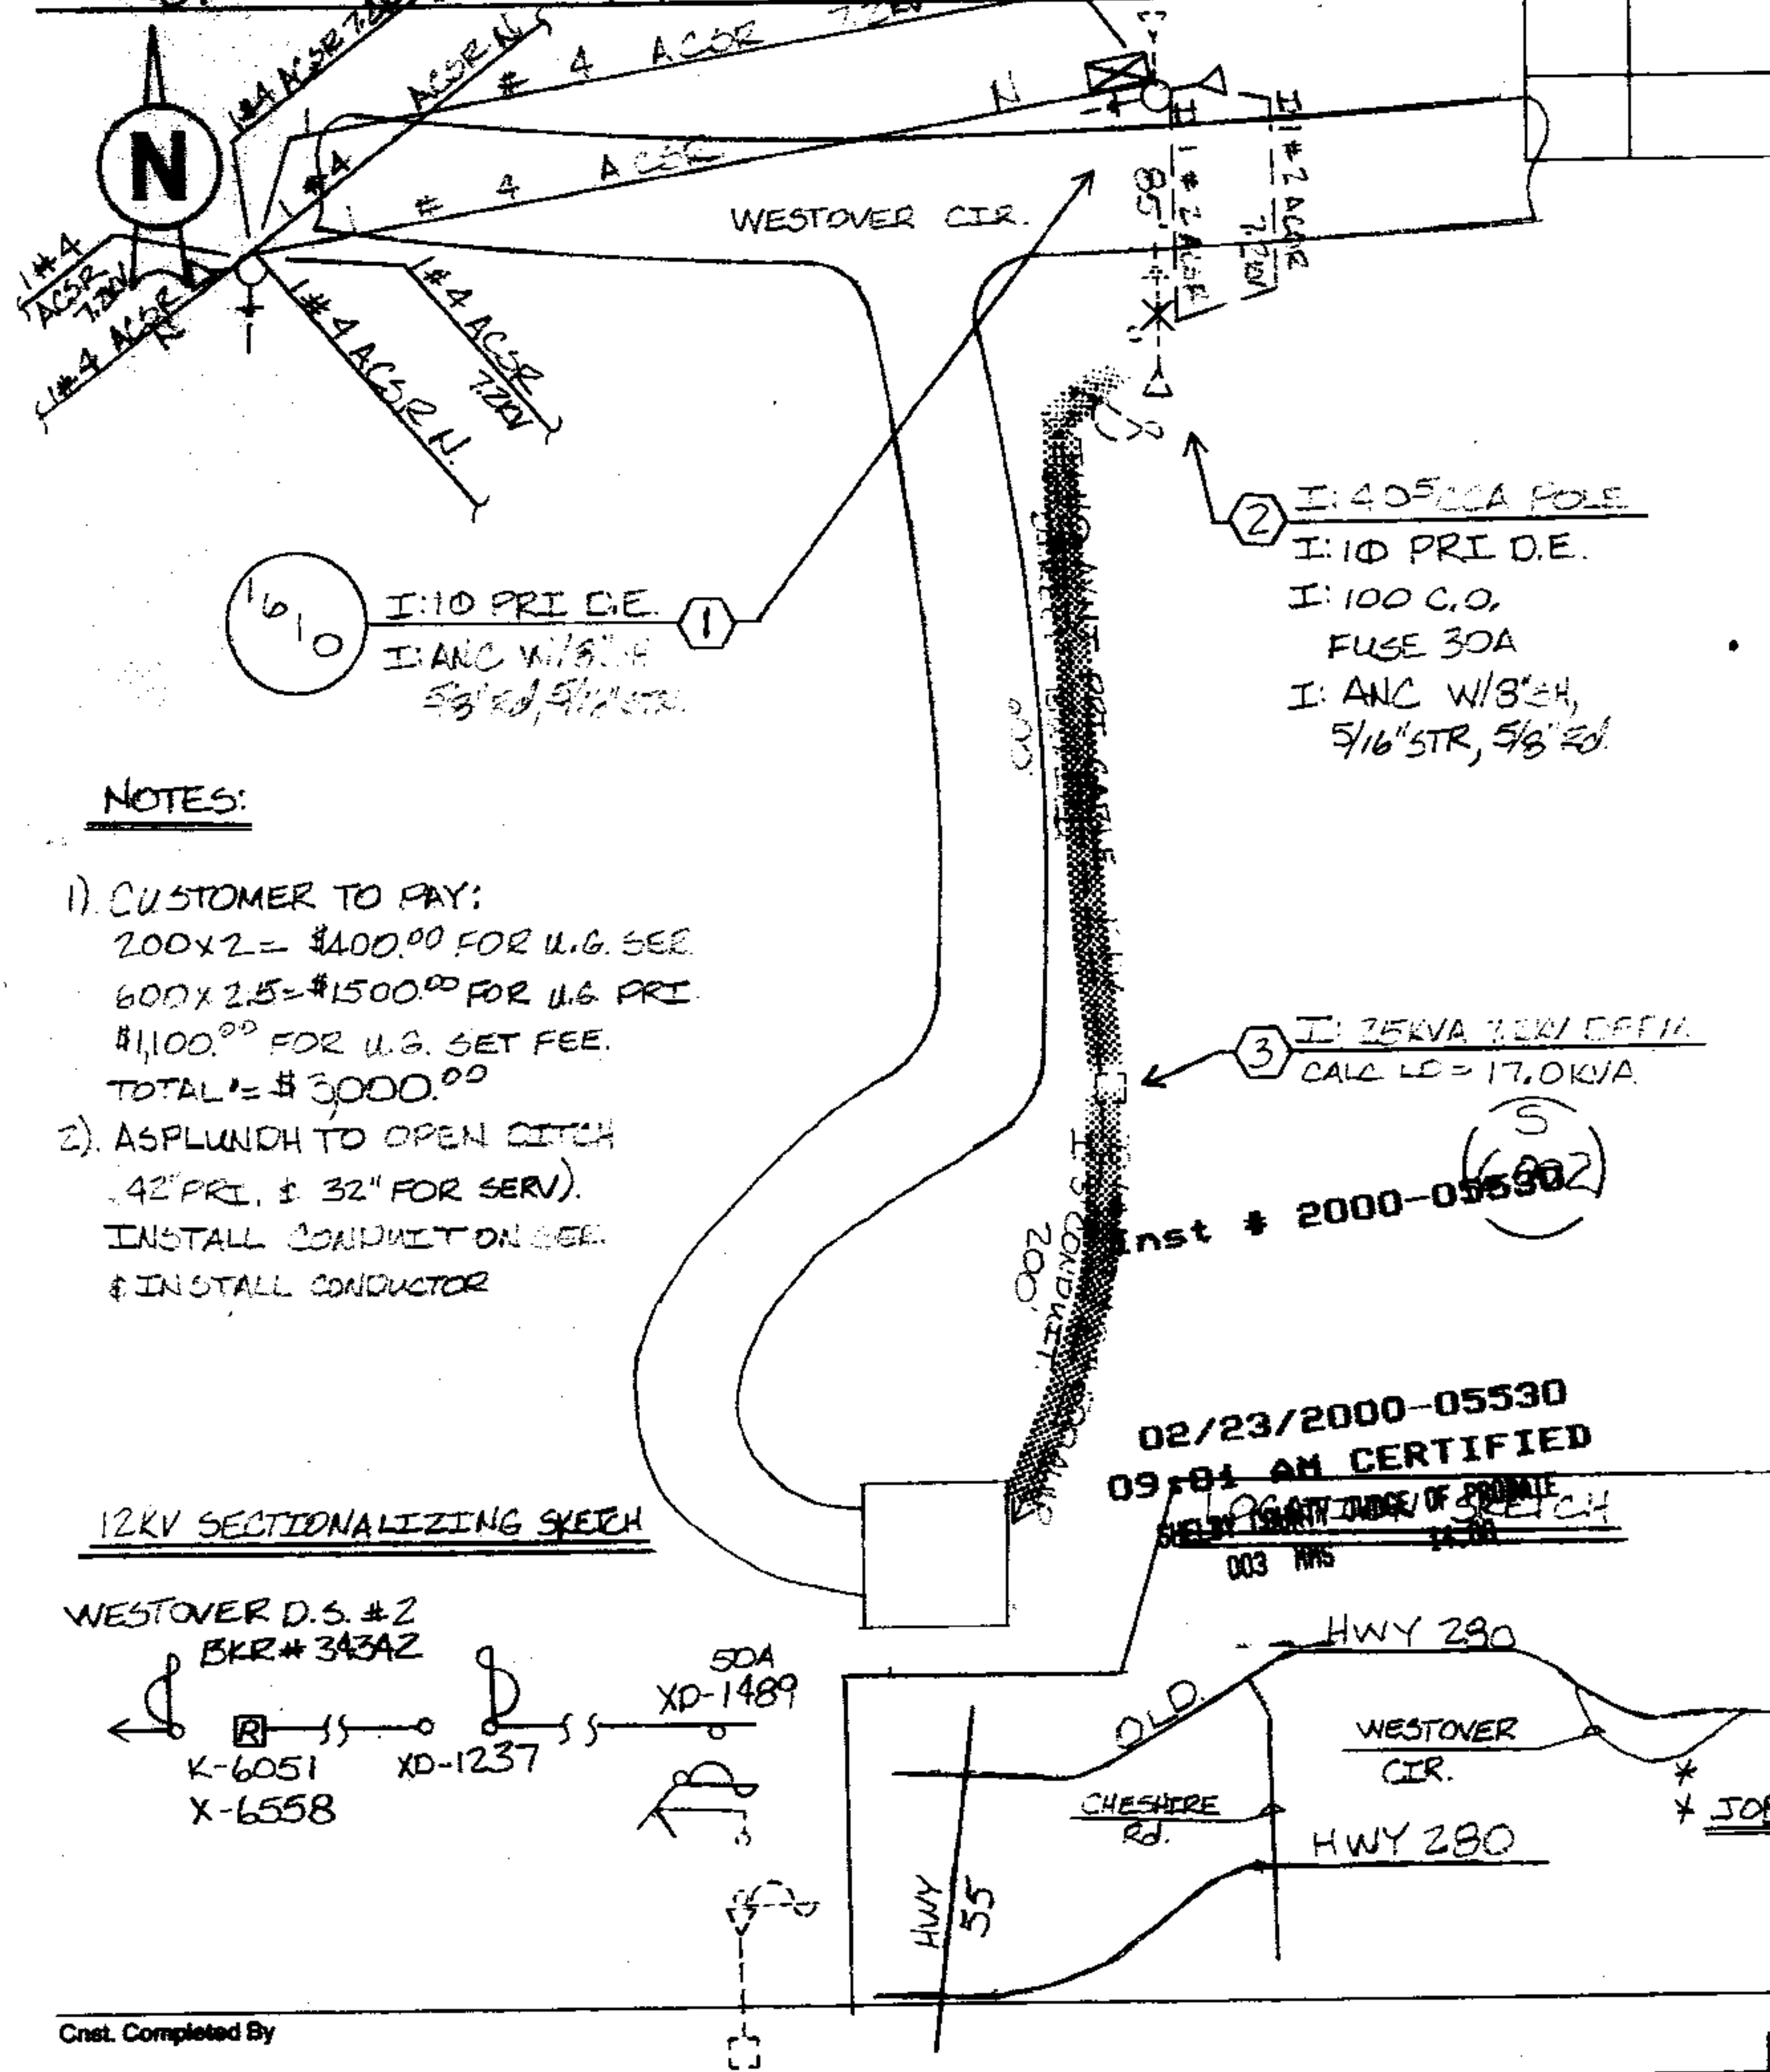 1#4 ACSR 7.2KV
ACSR N
1 # 4 ACSR
7.2KV
N
N
1#4
1 # 4 ACSR
WESTOVER CIR.
85'
I 1 #2 ACSR
I 1 #2 ACSR
7.2KV
1#4
ACSR
7.2KV
1#4 ACSR
N
1#4 ACSR N.
1#4 ACSR
7.2KV
2
I: 40⁵ CCA POLE
I: 1Φ PRI D.E.
I: 100 C.O.
FUSE 30A
I: ANC W/8"SH,
5/16"STR, 5/8" Rd.
1610
I: 1Φ PRI D.E.
1
I: ANC W/8"SH
5/8" Rd, 5/16" STR.
PRI CABLE
600'
NOTES:
1). CUSTOMER TO PAY:
200 X 2 = $400.00 FOR U.G. SER.
600 X 2.5 = $1500.00 FOR U.G. PRI.
$1,100.00 FOR U.G. SET FEE.
TOTAL = $3,000.00
2). ASPLUNDH TO OPEN DITCH
42" PRI. & 32" FOR SERV).
INSTALL CONDUIT ON SER.
& INSTALL CONDUCTOR
3
I: 25KVA 7.2KV
CALC LD = 17.0KVA
S
Inst # 2000-05530
CONDUIT
200'
02/23/2000-05530
09:01 AM CERTIFIED
SHELBY COUNTY JUDGE OF PROBATE
003 MMS 14.00
SKETCH
12KV SECTIONALIZING SKETCH
WESTOVER D.S. #2
BKR# 34342
50A
XD-1489
R
K-6051
X-6558
XD-1237
OLD
HWY 280
WESTOVER
CIR.
CHESHIRE
Rd.
HWY 280
HWY
55
* * JOB
Cnst. Completed By